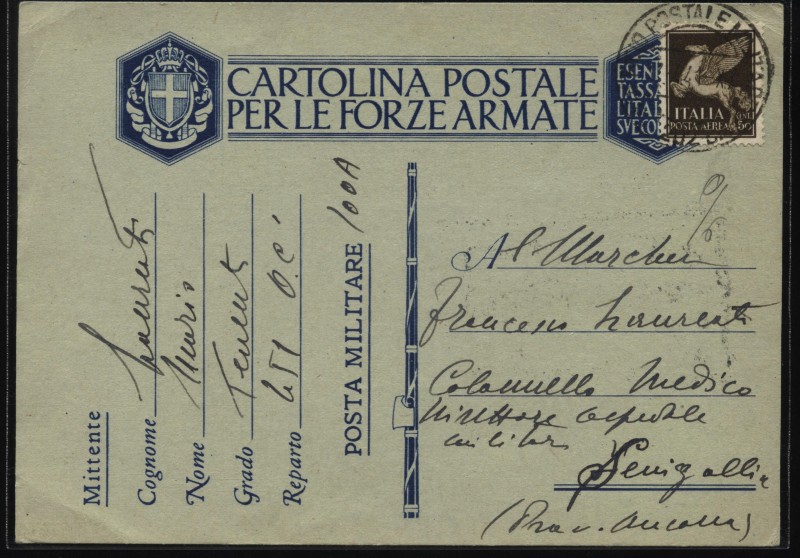 CARTOLINA POSTALE
PER LE FORZE ARMATE
ESEN
TASSA
L'ITAL
SVECO
ITALIA
POSTA AEREA
Mittente
Cognome Laureati
Nome Mario
Grado Tenente
Reparto 451 O.C.
POSTA MILITARE 100A
Al Marchese
Francesco Laureati
Colonnello Medico
Direttore Ospedale
militare
Senigallia
(Prov. Ancona)